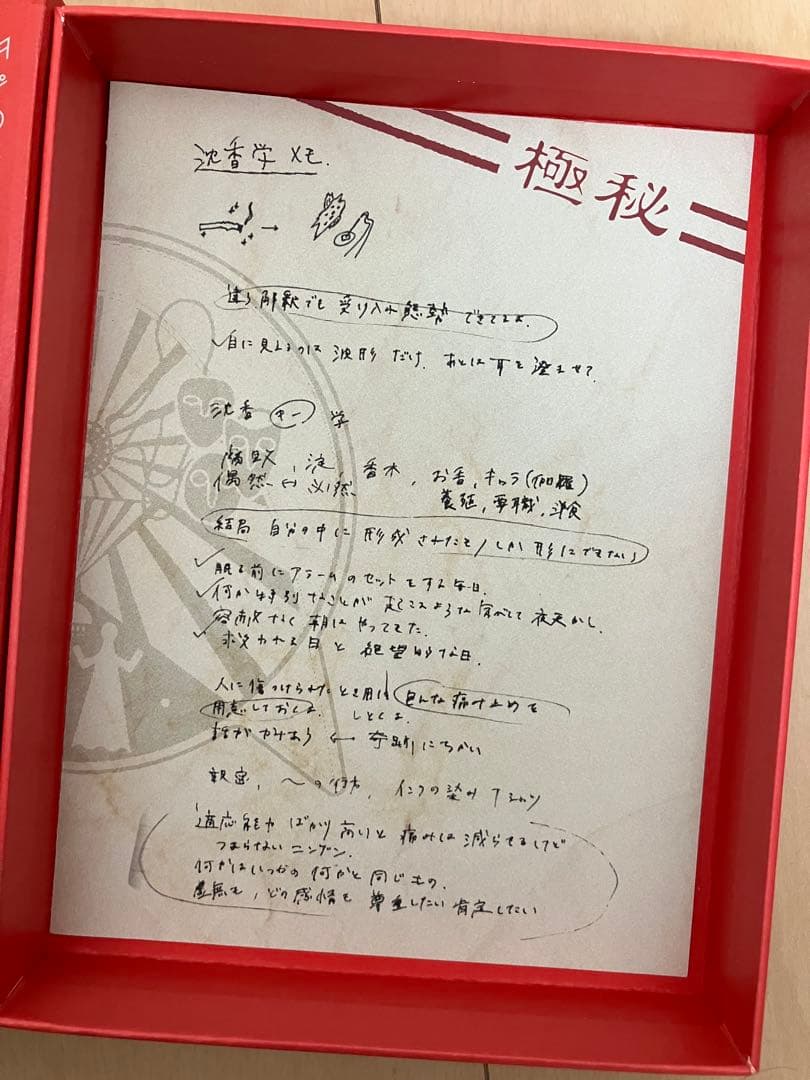 極秘
沈香学 メモ.
違う解釈でも 受け入れ態勢 できてるよ.
✓目に見えるのは 波形 だけ. あとは耳を澄ませて.
沈香 キー 学
淀, 香木, お香, キャラ(伽羅)
偶然 ↔ 必然
結局 自分の中に 形成されたモノしか 形にできない
✓眠る前に アラームのセットをする毎日.
✓何か特別なことが 起こるような気がして 夜更かし.
容赦なく 朝は やってきた.
✓求められる日と 絶望的な日.
人に傷つけられたとき用に
痛み止めを
用意しておくよ. しとくよ.
↔ 奇跡にちかい
親密, 〜の行方, インクの染み Tシャツ
適応能力 ばかり 高いと 痛みは 減らせるけど
つまらない ニンゲン.
何かはいつかの 何かと 同じもの.
虚無も, どの感情も 尊重したい 肯定したい